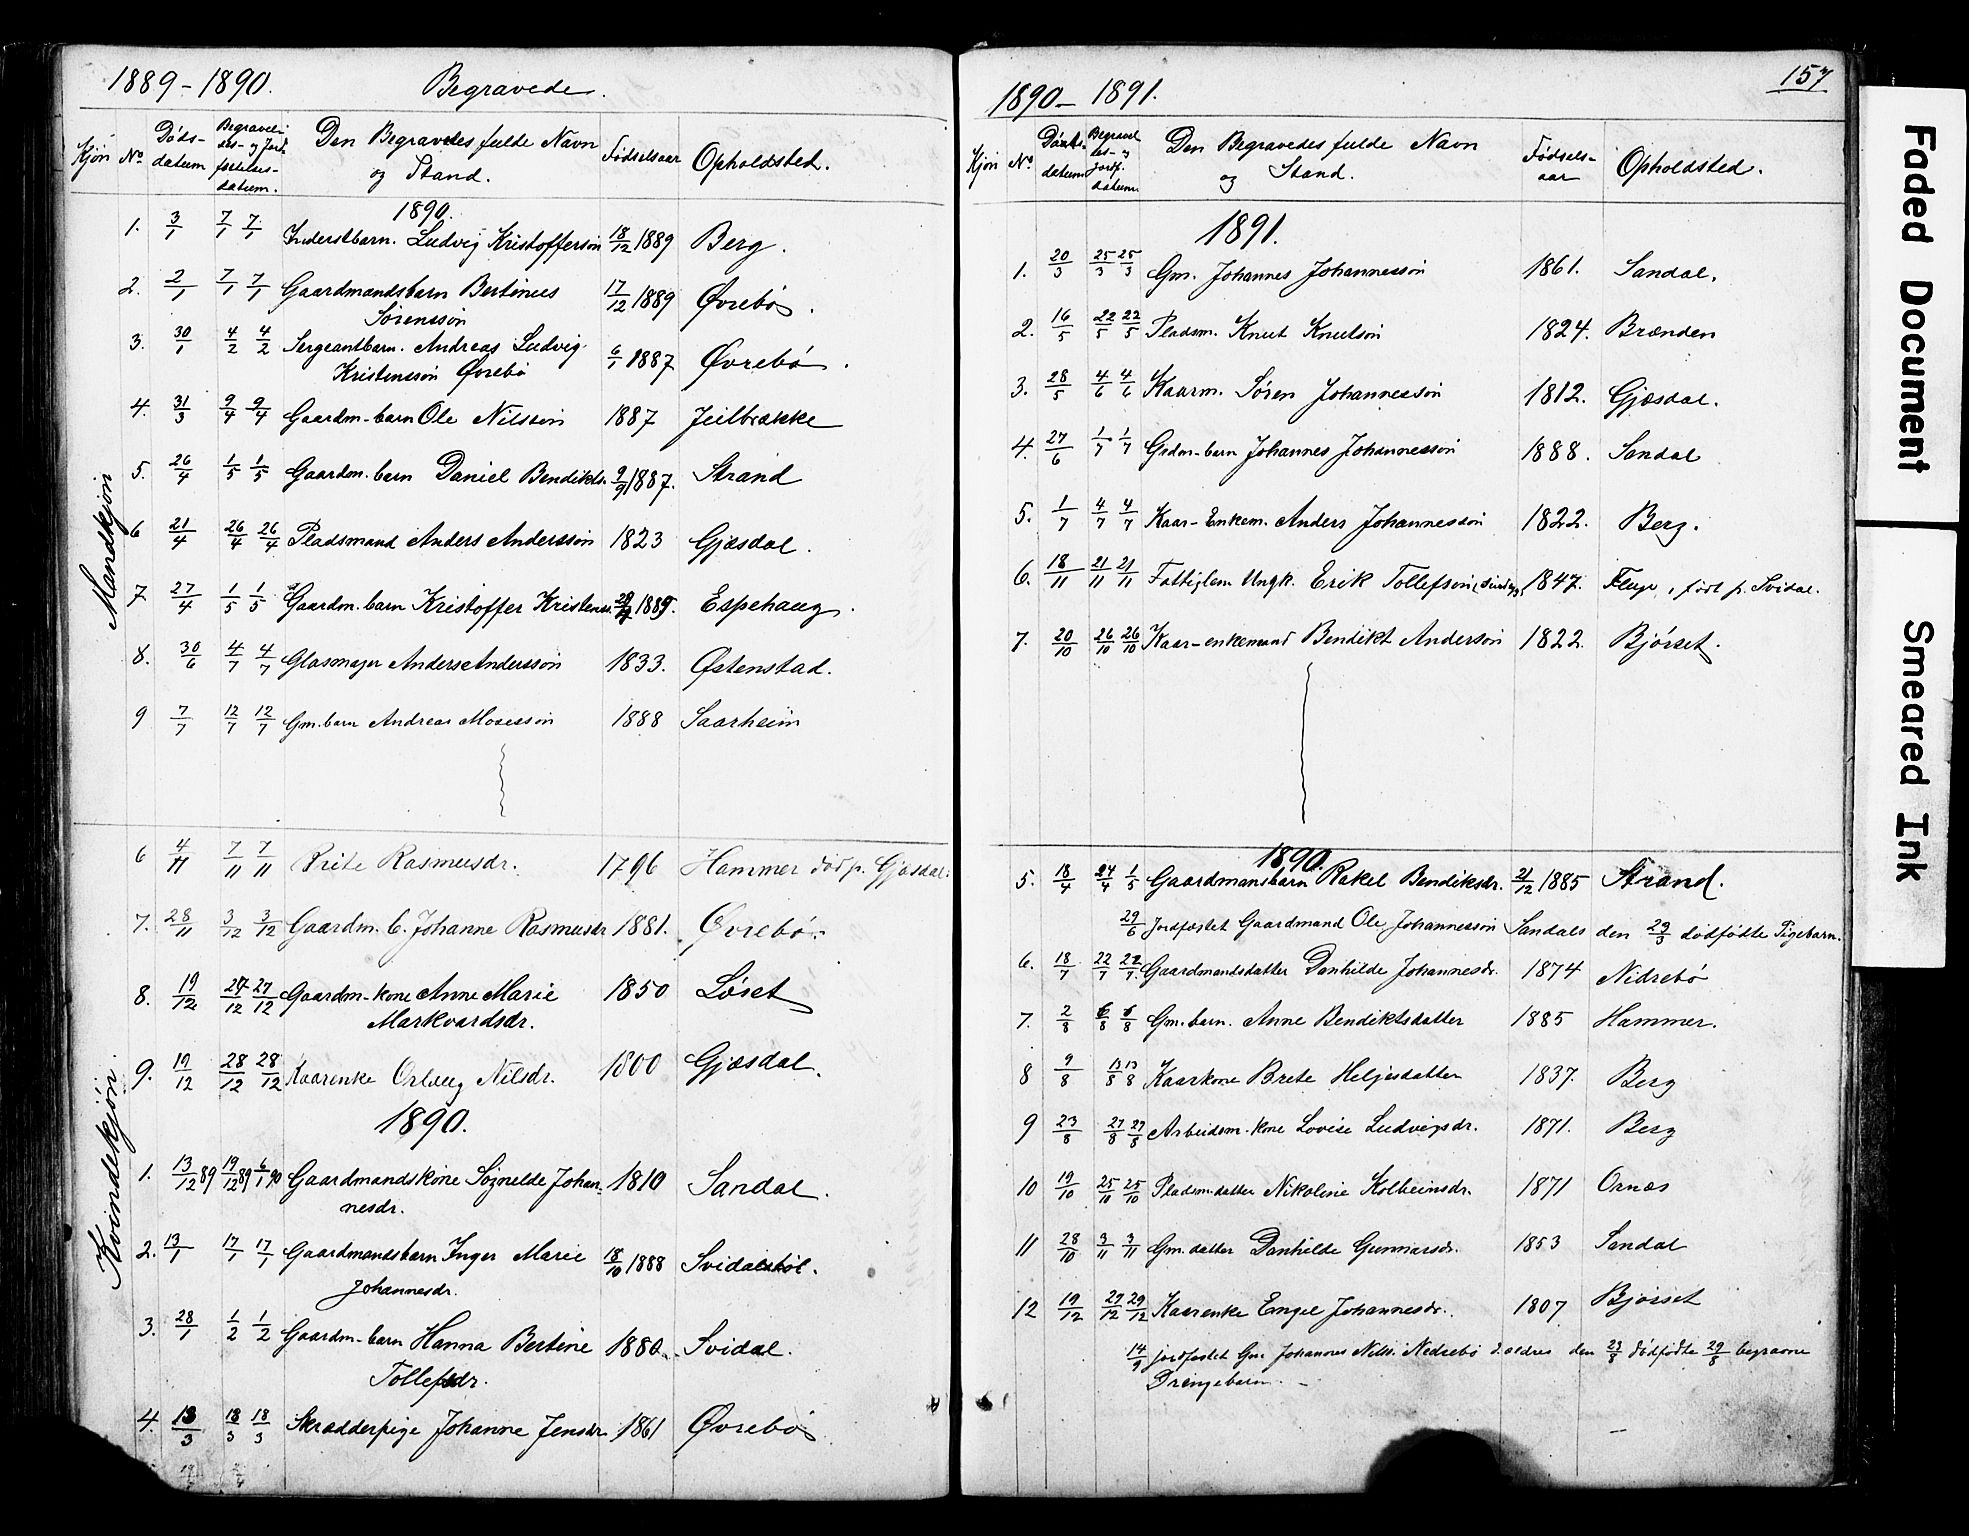 1889 - 1890. Begravede.
Kjøn No Døds-datum Begravel-ses- og Jord-fæstelses-datum. Den Begravedes fulde Navn og Stand. Fødselsaar Opholdsted.
Mandkjøn
1890.
1. 3/1 7/1 7/1 Inderstbarn. Ludvig Kristoffersøn 18/12 1889 Berg.
2. 2/1 7/1 7/1 Gaardmandsbarn Bertinus 17/12 1889 Øvrebø.
Sørenssøn
3. 30/1 4/2 4/2 Sergeantbarn. Andreas Ludvig 6/1 1887 Øvrebø.
Kristenssøn Øvrebø
4. 31/3 9/4 9/4 Gaardm-barn Ole Nilssøn 1887
5. 26/4 1/5 1/5 Gaardm. barn Daniel Bendikts. 9/9 1887. Strand
6 21/4 26/4 26/4 Pladsmand Anders Anderssøn 1823 Gjæsdal.
7 27/4 1/5 1/5 Gaardm. barn Kristoffer Kristens. 1889. Espehaug.
8. 30/6 4/7 4/7 Glasmager Anders Anderssøn 1833. Østenstad.
9 7/7 12/7 12/7 Gm. barn Andreas Mosessøn 1888 Saarheim
Kvindekjøn.
6 4/11 7/11 7/11 Brite Rasmusdr. 1796 Hammer død p. Gjæsdal.
7. 28/11 3/12 3/12 Gaardm. b. Johanne Rasmusdr 1881. Øvrebø.
8. 19/12 27/12 27/12 Gaardm-kone Anne Marie 1850 Løset
Markvardsdr.
9. 19/12 28/12 28/12 Kaarenke Orlaug Nilsdr. 1800 Gjæsdal.
1890.
1. 13/12 89 19/12 89 6/1 90 Gaardmandskone Søgnelde Johan- 1810 Sandal.
nesdr.
2. 13/1 17/1 17/1 Gaardmandsbarn Inger Marie 18/10 1888 Svidalsbøl.
Johannesdr.
3. 28/1 1/2 1/2 Gaardm-barn Hanna Bertine 1880. Svidal.
Tollefsdr.
4. 13/3 18/3 18/3 Skrædderpige Johanne Jensdr. 1861 Øvrebø
1890 - 1891. 157
Kjøn No Døds-datum Begravel-ses- og Jordf. datum. Den Begravedes fulde Navn og Stand. Fødsels-aar Opholdsted.
1891.
1. 20/3 25/3 25/3 Gm. Johannes Johannessøn 1861. Sandal.
2. 16/5 22/5 22/5 Pladsm. Knut Knutsøn 1824. Brænden
3. 28/5 4/6 4/6 Kaarm. Søren Johannessøn 1812. Gjæsdal.
4. 27/6 1/7 1/7 Grdm-barn Johannes Johannessøn 1888. Sandal
5. 1/7 4/7 4/7 Kaar-Enkem. Anders Johannessøn 1822. Berg.
6. 18/11 21/11 21/11 Fattiglem Ungk. Erik Tollefsøn 1847. Fluge, født p. Svidal.
7. 20/10 26/10 26/10 Kaar-enkemand Bendikt Andersøn 1822. Bjørset.
1890.
5. 18/4 24/4 1/5 Gaardmansbarn Rakel Bendiksdr. 21/12 1885 Strand.
29/6 Jordfæstet Gaardmand Ole Johannessøn Sandals den 29/3 dødfødte Pigebarn.
6. 18/7 22/7 22/7 Gaardmandsdatter Danhilde Johannesdr. 1874 Nidrebø
7. 2/8 6/8 6/8 Gm. barn. Anne Bendiktsdatter 1885 Hammer.
8 9/8 13/8 13/8 Kaarkone Brete Heljesdatter 1837. Berg
9 23/8 27/8 27/8 Arbeidsm-kone Lovise Ludvigsdr. 1871. Berg
10 19/10 25/10 25/10 Pladsm. datter Nikoline Kolbeinsdr. 1871 Ornæs
11 28/10 3/11 3/11 Gm. datter Danhilde Gunnarsdr. 1853 Sandal
12 19/12 29/12 29/12 Kaarenke Engel Johannesdr. 1807 Bjørset
14/9 jordfæstet Gm. Johannes Nills. Nedrebø den 23/8 dødfødte 29/8 begravne
Drengebarn.
Faded Document
Smeared Ink